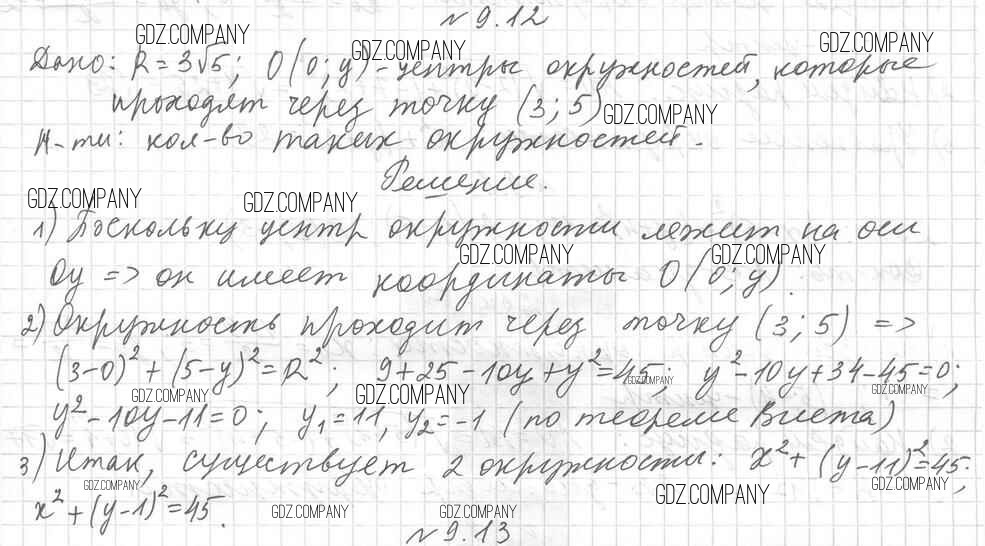 № 9.12
GDZ.COMPANY GDZ.COMPANY GDZ.COMPANY
Дано: R = 3√5; O(0; y) - центры окружностей, которые
проходят через точку (3; 5) GDZ.COMPANY
Н-ти: кол-во таких окружностей.
Решение.
GDZ.COMPANY GDZ.COMPANY
1) Поскольку центр окружности лежит на оси
GDZ.COMPANY GDZ.COMPANY
Oy => он имеет координаты O(0; y).
2) Окружность проходит через точку (3; 5) =>
(3-0)² + (5-y)² = R²; 9+25-10y+y²=45; y²-10y+34-45=0;
GDZ.COMPANY GDZ.COMPANY GDZ.COMPANY GDZ.COMPANY
y²-10y-11=0; y₁=11, y₂=-1 (по теореме Виета)
3) Итак, существует 2 окружности: x²+(y-11)²=45;
GDZ.COMPANY GDZ.COMPANY GDZ.COMPANY
x²+(y-1)²=45.
GDZ.COMPANY GDZ.COMPANY
№ 9.13